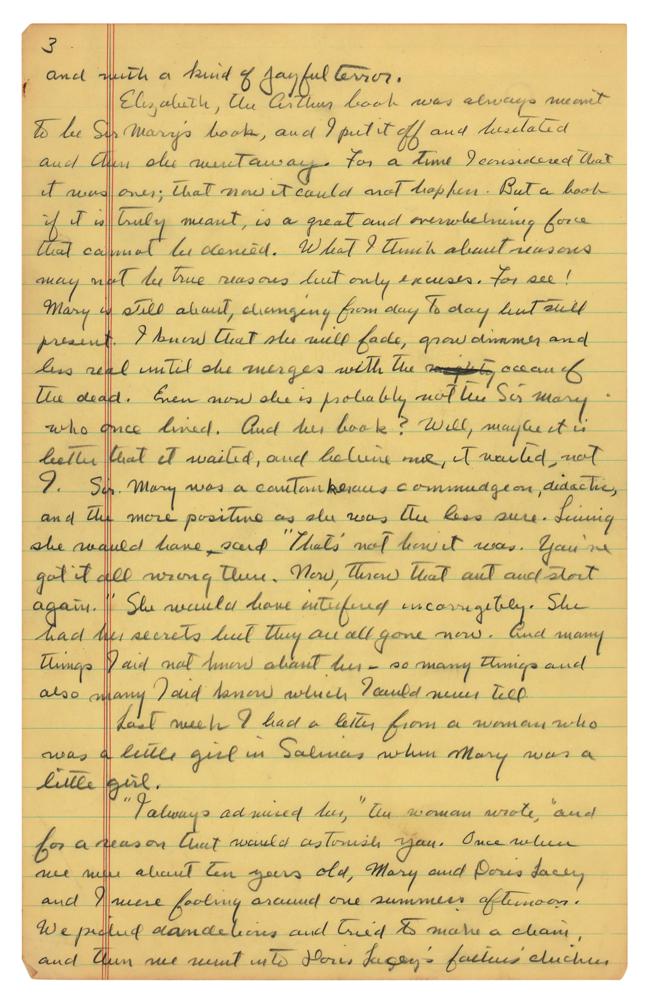 3
and with a kind of joyful terror.
Elizabeth, the Arthur book was always meant
to be Sir Mary's book, and I put it off and hesitated
and then she went away. For a time I considered that
it was over; that now it could not happen. But a book
if it is truly meant, is a great and overwhelming force
that cannot be denied. What I think about reasons
may not be true reasons but only excuses. For see!
Mary is still about, changing from day to day but still
present. I know that she will fade, grow dimmer and
less real until she merges with the ocean of
the dead. Even now she is probably not the Sir Mary
who once lived. And her book? Well, maybe it is
better that it waited, and believe me, it waited, not
I. Sir Mary was a cantankerous commudgeon, didactic,
and the more positive as she was the less sure. Living
she would have said "That's not how it was. You've
got it all wrong there. Now, throw that out and start
again." She would have interfered incorrigibly. She
had her secrets but they are all gone now. And many
things I did not know about her - so many things and
also many I did know which I could never tell
Last week I had a letter from a woman who
was a little girl in Salinas when Mary was a
little girl.
"I always admired her," the woman wrote, "and
for a reason that would astonish you. Once when
we were about ten years old, Mary and Doris Lacey
and I were fooling around one summers afternoon.
We picked dandelions and tried to make a chain,
and then we went into Doris Lacey's father's chicken